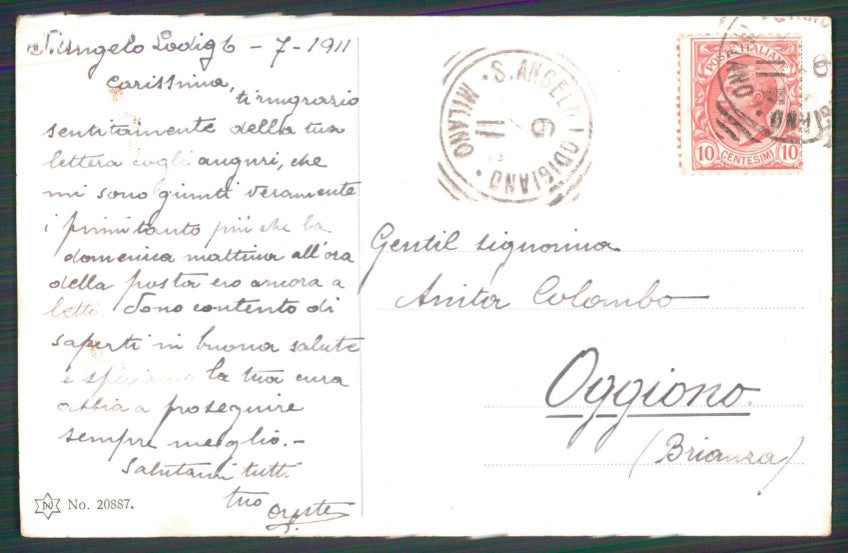 S. Angelo Lodig 6 - 7 - 1911
Carissima,
ti ringrazio
sentitamente della tua
lettera cogli auguri, che
mi sono giunti veramente
i primi tanto più che la
domenica mattina all'ora
della posta ero ancora a
letto. Sono contento di
saperti in buona salute
e la tua cura
abbia a proseguire
sempre meglio. -
Salutami tutti
tuo Oreste
No. 20887.
S. ANGELO LODIGIANO
MILANO
6
11
POSTE ITALIANE
10 CENTESIMI 10
Gentil Signorina
Anita Colombo
Oggiono
(Brianza)